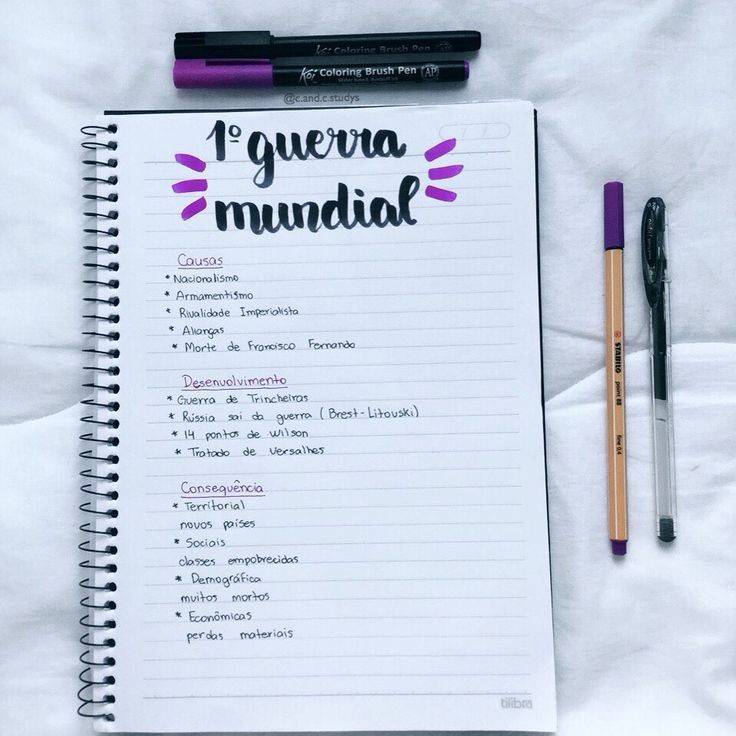 Koi Coloring Brush Pen
Koi Coloring Brush Pen AP
@c.and.c.studys
1º guerra
mundial
Causas
* Nacionalismo
* Armamentismo
* Rivalidade Imperialista
* Alianças
* Morte de Francisco Fernando
Desenvolvimento
* Guerra de Trincheiras
* Rússia sai da guerra (Brest-Litouski)
* 14 pontos de Wilson
* Tratado de Versalhes
Consequência
* Territorial
novos países
* Sociais
classes empobrecidas
* Demográfica
muitos mortos
* Econômicas
perdas materiais
tilibra
STABILO point 88 fine 0.4